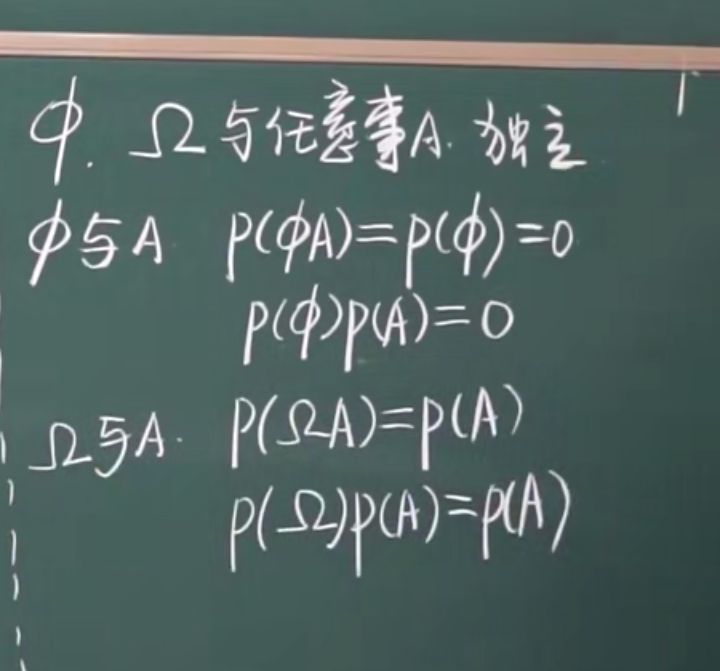 φ. Ω与任意事A. 独立
φ与A P(φA)=P(φ)=0
P(φ)P(A)=0
Ω与A. P(ΩA)=P(A)
P(Ω)P(A)=P(A)